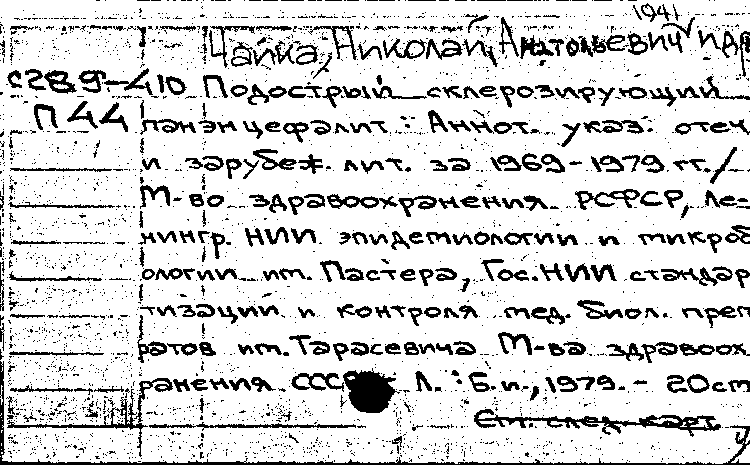 1941
Чайка, Николай Анатольевич и др
с289-410 Подострый склерозирующий
П44 панэнцефалит : Аннот. указ. отеч
и зарубеж. лит. за 1969-1979 гг./
М-во здравоохранения РСФСР, Ле-
нингр. НИИ эпидемиологии и микроб
ологии им. Пастера, Гос. НИИ стандар
тизации и контроля мед. биол. преп
ратов им. Тарасевича М-ва здравоох
ранения СССР - Л. : Б.и., 1979. - 20 см
См. след. карт